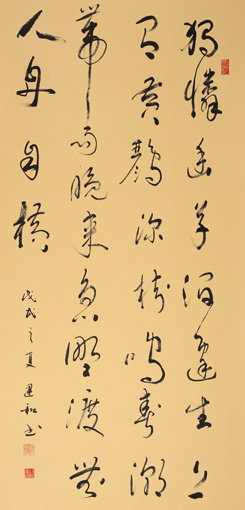 獨憐幽草澗邊生上
有黃鸝深樹鳴春潮
帶雨晚來急野渡無
人舟自橫
戊戌之夏 和书